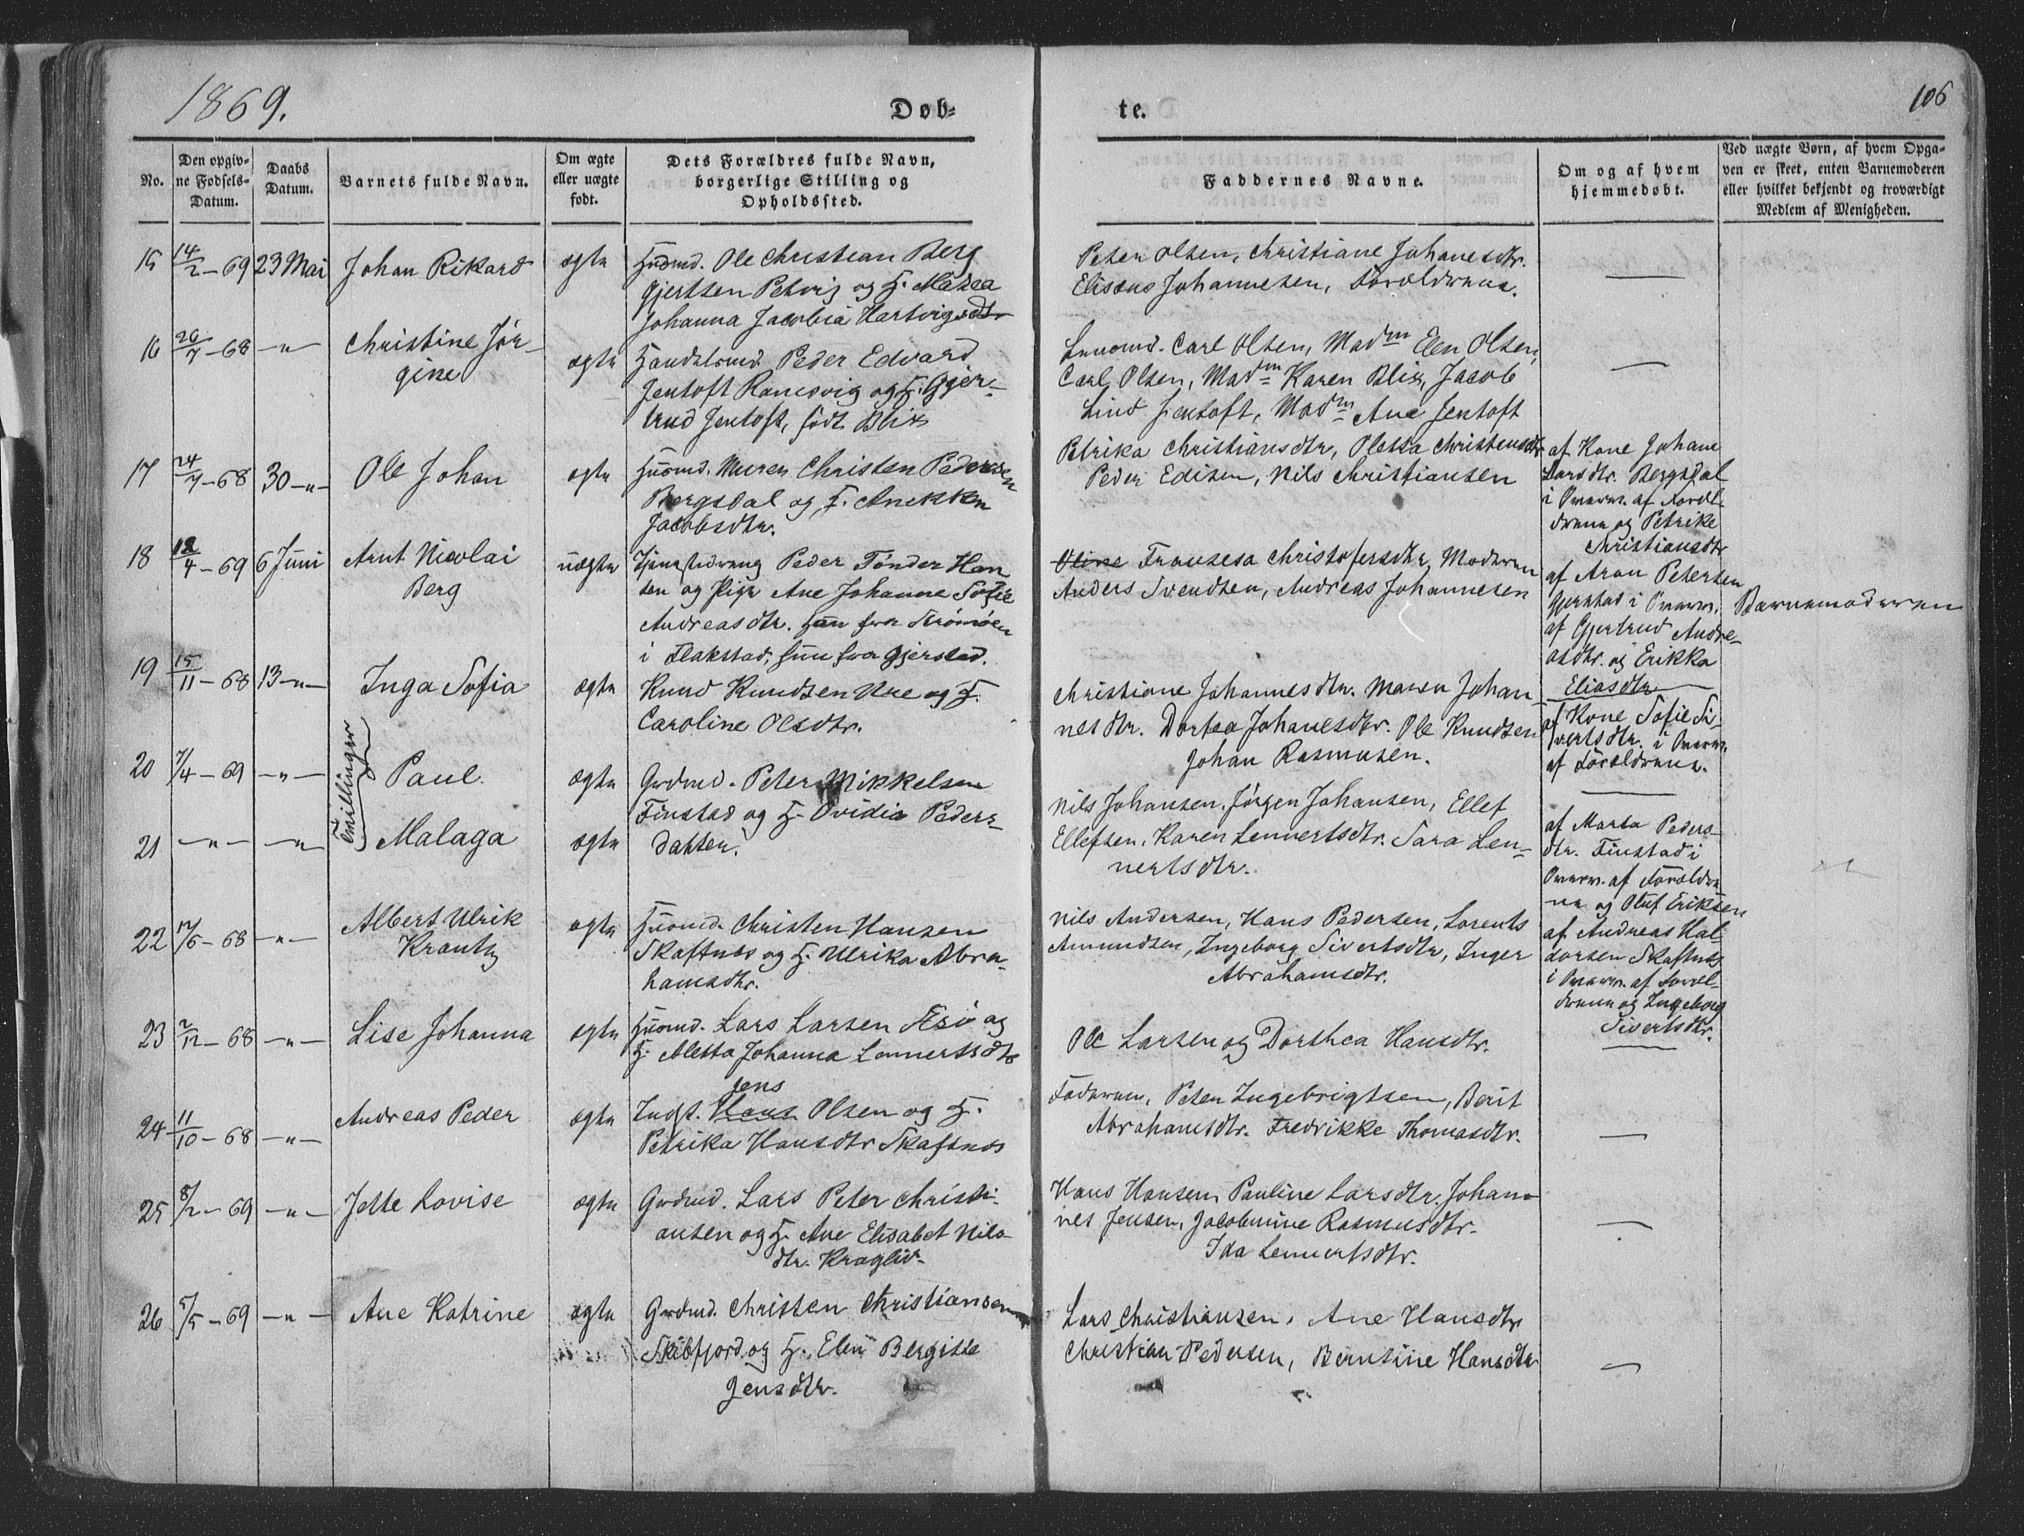 1869.
Døb-
te.
106
No.
Den opgiv-
ne Fødsels-
Datum.
Daabs
Datum.
Barnets fulde Navn.
Om ægte
eller uægte
født.
Dets Forældres fulde Navn,
borgerlige Stilling og
Opholdssted.
Faddernes Navne.
Om og af hvem
hjemmedøbt.
Ved uægte Børn, af hvem Opga-
ven er skeet, enten Barnemoderen
eller hvilket bekjendt og troværdigt
Medlem af Menigheden.
15 14/2 - 69 23 Mai Johan Rikard ægte Huusmd. Ole Christian Berg
Gjertsen Petvig og H. Masea
Johanna Jacobia Hartvigsdtr
Peter Olsen, Christiane Johanesdtr.
Elisæus Johannesen, Forældrene.
16 26/7 - 68 -"- Christine Jør-
gine
ægte Handelsmd. Peder Edvard
Jentoft Ramsvig og H. Gjer-
trud Jentoft, født Blix
Carl Olsen, Madm Elen Olsen,
Carl Olsen, Madm Karen Blix, Jacob
Lind Jentoft, Madm Ane Jentoft
17 24/7 - 68 30 -"- Ole Johan ægte Huusmd. Murer Christen Pedersen
Bergsdal og H. Anekken
Jacobsdtr.
Petrika Christiansdtr, Oletta Christensdtr
Peder Edisen, Nils Christiansen
af Kone Johane
Larsdtr. Bergsdal
i Overv. af Foræl-
drene og Petrike
Christiansdtr
18 18/4 - 69 6 Juni Arnt Nicolai
Berg
uægte Tjenestedreng Peder Tønder Han
sen og Pige Ane Johanne Sofie
Andreasdtr. Han fra Strømøen
i Flakstad, hun fra Gjerstad.
Oline Franzesa Christofersdtr, Moderen
Anders Svendsen, Andreas Johannesen
af Aron Petersen
Gjerstad i Overv.
af Gjertrud Andre-
asdtr. og Erikka
Eliasdtr
Barnemoderen
19 15/11 - 68 13 -"- Inga Sofia ægte Knud Knudsen Ure og H.
Caroline Olsdtr.
Christiane Johannesdtr. Maren Johan-
nesdtr. Dortea Johanesdtr. Ole Knudsen
Johan Rasmusen.
af Kone Sofie Si-
vertsdtr. i Overv.
af Forældrene.
Tvillinger
20 7/4 - 69 -"- Paul. ægte Grdmd. Peter Mikkelsen
Finstad og H. Ovidia Peders-
datter.
21 -"- -"- Malaga ægte
Nils Johansen, Jørgen Johansen, Ellef
Ellefsen, Karen Lennertsdtr. Sara Len-
nertsdtr.
af Marta Peders-
dtr. Finstad i
Overv. af Forældre
ne og Oluf Eriksen
22 17/6 - 68 -"- Albert Ulrik
Krantz
ægte Huusmd. Christen Hansen
Skaftnæs og H. Ulrika Abra-
hamsdtr.
Nils Andersen, Hans Pedersen, Lorents
Amundsen, Ingeborg Sivertsdtr, Inger
Abrahamsdtr.
af Andreas Hal-
dorsen Skaftnæs
i Overv. af Foræl-
drene og Ingeborg
Sivertsdtr.
23 2/12 - 68 -"- Lise Johanna ægte Huusmd. Lars Larsen Æsø og
H. Aletta Johanna Lennertsdtr
Ole Larsen og Dorthea Hansdtr.
24 11/10 - 68 -"- Andreas Peder ægte Indst. Hans Jens Olsen og H.
Petrika Hansdtr Skaftnæs
Faderen, Peter Ingebrigtsen, Berit
Abrahamsdtr. Fredrikke Thomasdtr.
25 8/2 - 69 -"- Jette Lovise ægte Grdmd. Lars Peter Christi-
ansen og H. Ane Elisabet Nils-
dtr. Kraglid.
Hans Hansen, Pauline Larsdtr. Johan-
nes Jensen, Jacobmine Rasmusdtr.
Ida Lennertsdtr.
26 5/5 - 69 -"- Ane Katrine ægte Grdmd. Christen Christiansen
Skibfjord og H. Elen Bergitte
Jensdtr.
Lars Christiansen, Ane Hansdtr
Christian Pedersen, Berntine Hansdtr